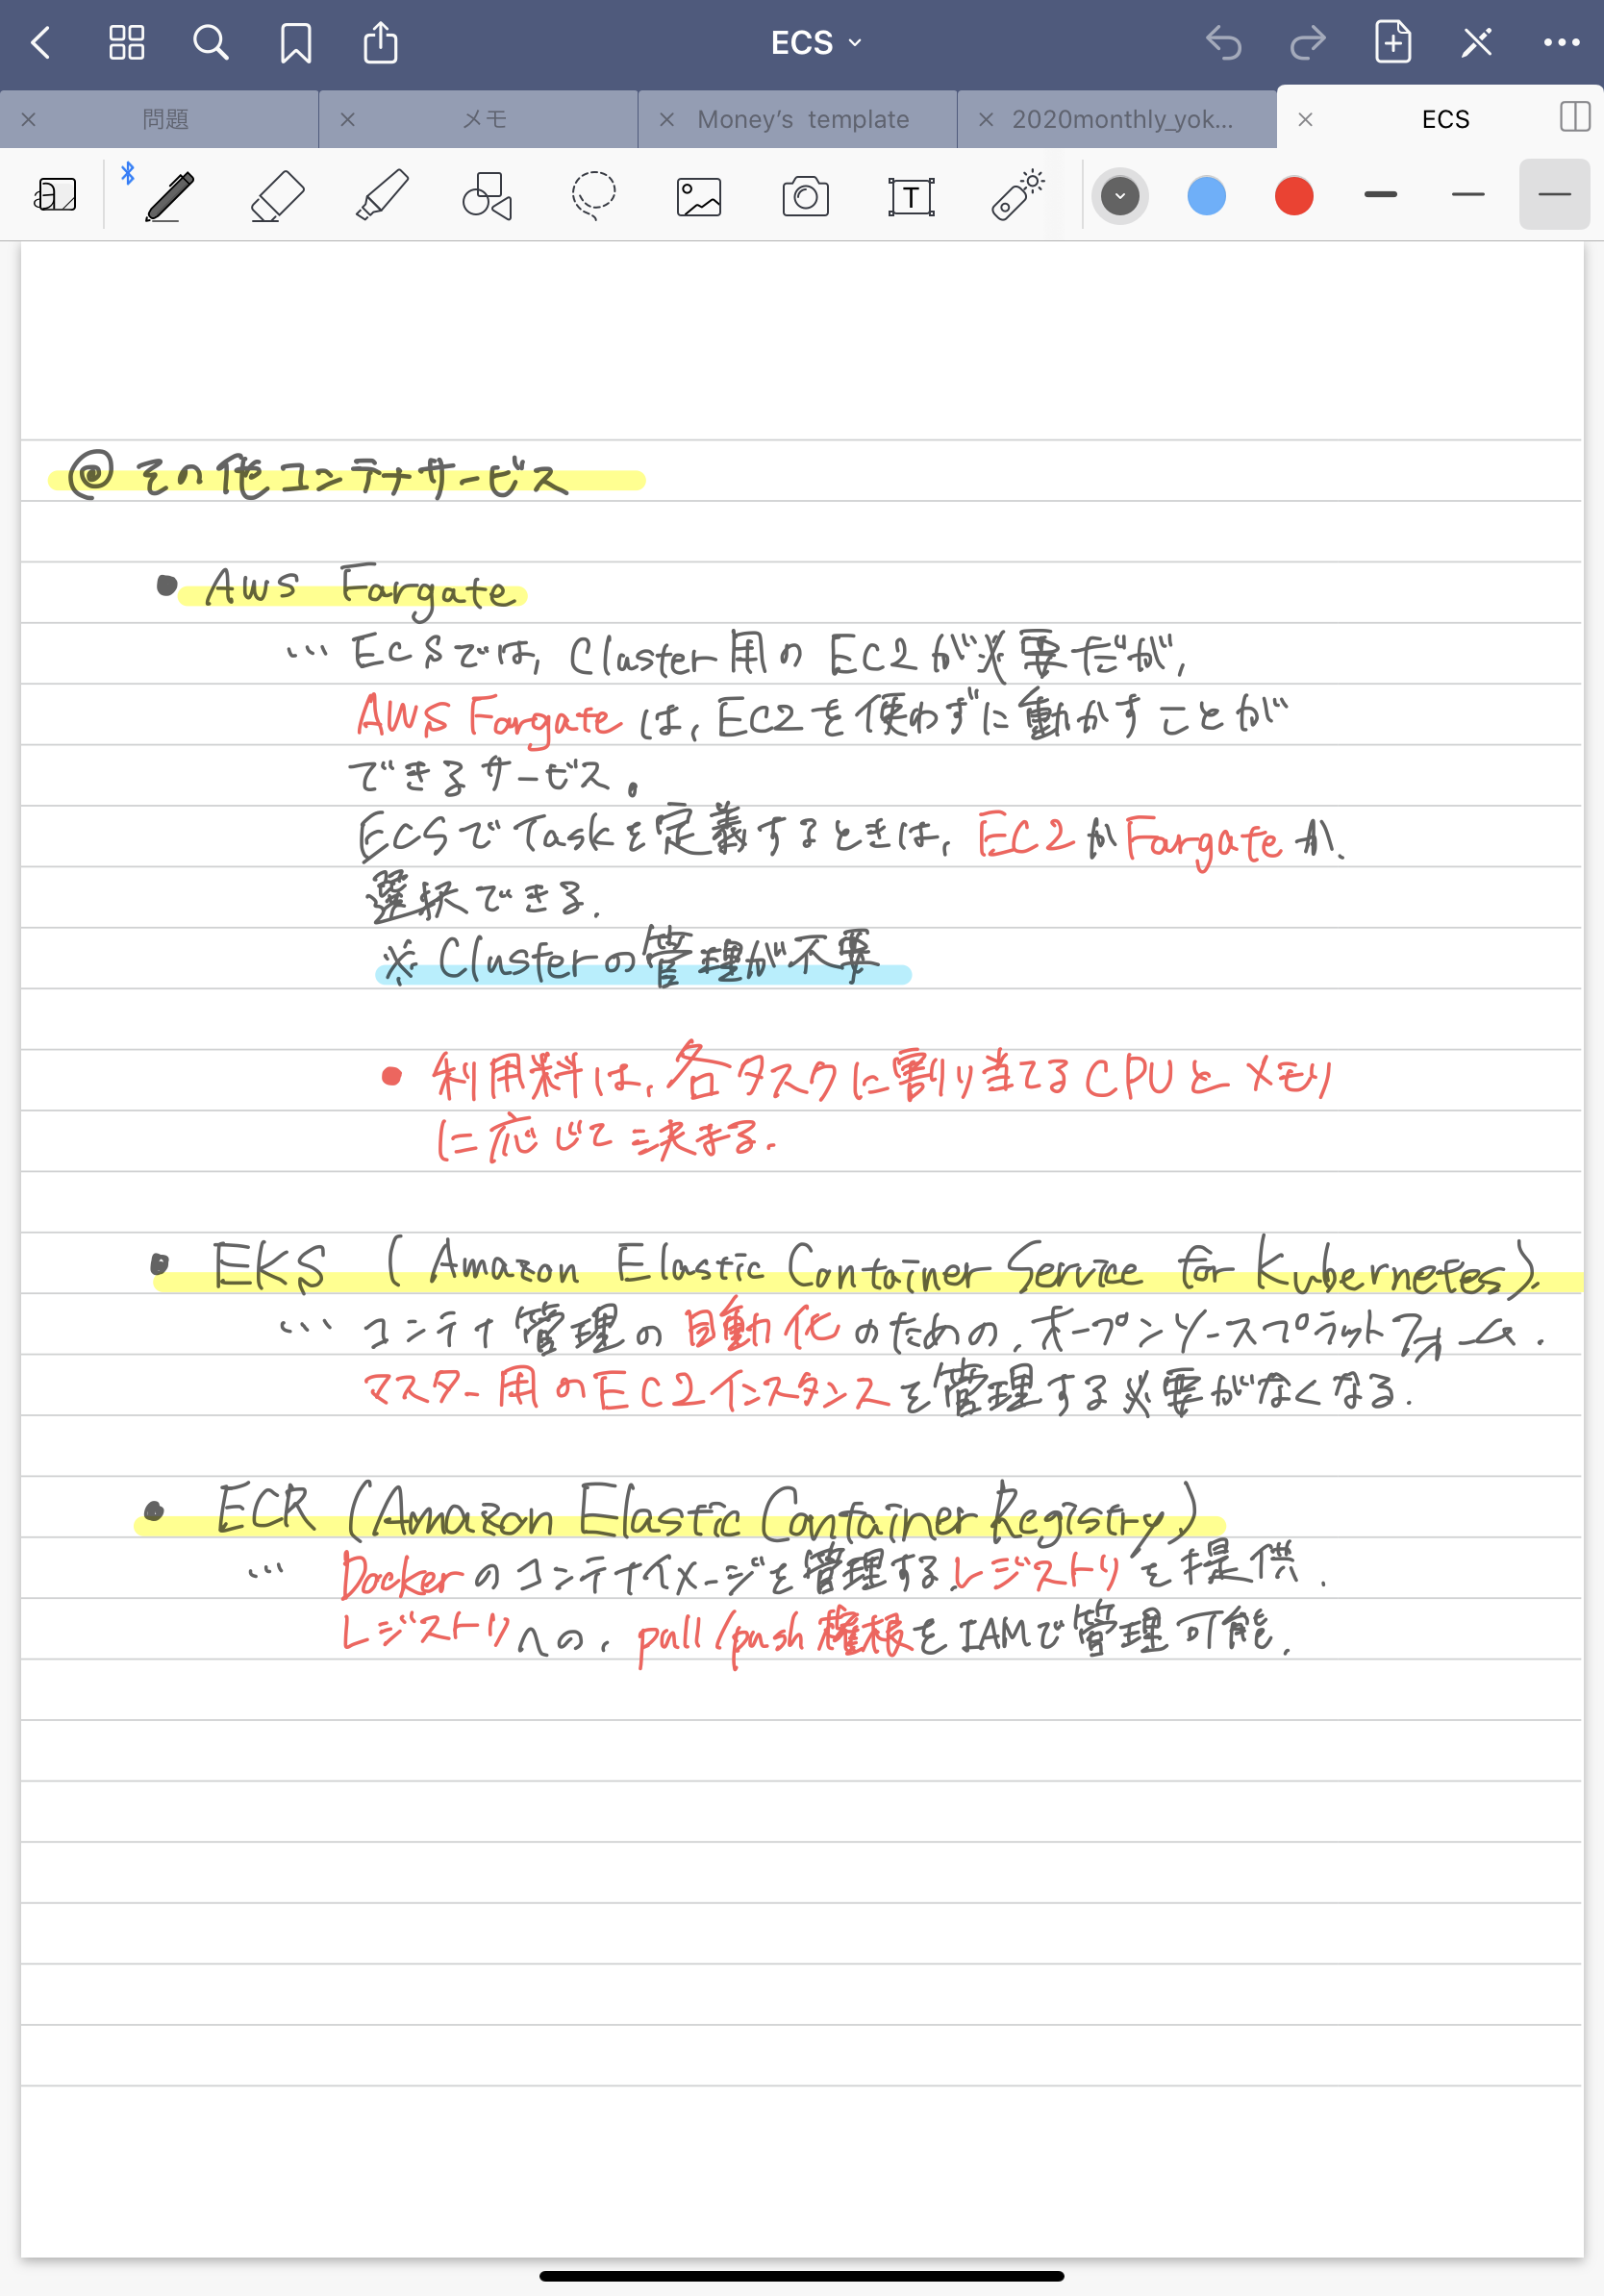 ECS
問題
メモ
Money's template
2020monthly_yok...
ECS
T
@ その他コンテナサービス
• Aws Fargate
… ECSでは, Cluster用の EC2が必要だが,
AWS Fargate は, EC2を使わずに動かすことが
できるサービス。
ECSでTaskを定義するときは, EC2かFargateか.
選択できる.
※ Clusterの管理が不要
• 利用料は, 各タスクに割り当てるCPUとメモリ
に応じて決まる.
• EKS ( Amazon Elastic Container Service for Kubernetes).
… コンテナ管理の自動化のための, オープンソースプラットフォーム.
マスター用のEC2インスタンスを管理する必要がなくなる.
• ECR (Amazon Elastic Container Registry)
… Dockerのコンテナイメージを管理する.レジストリを提供.
レジストリへの, pull/push権限をIAMで管理可能.